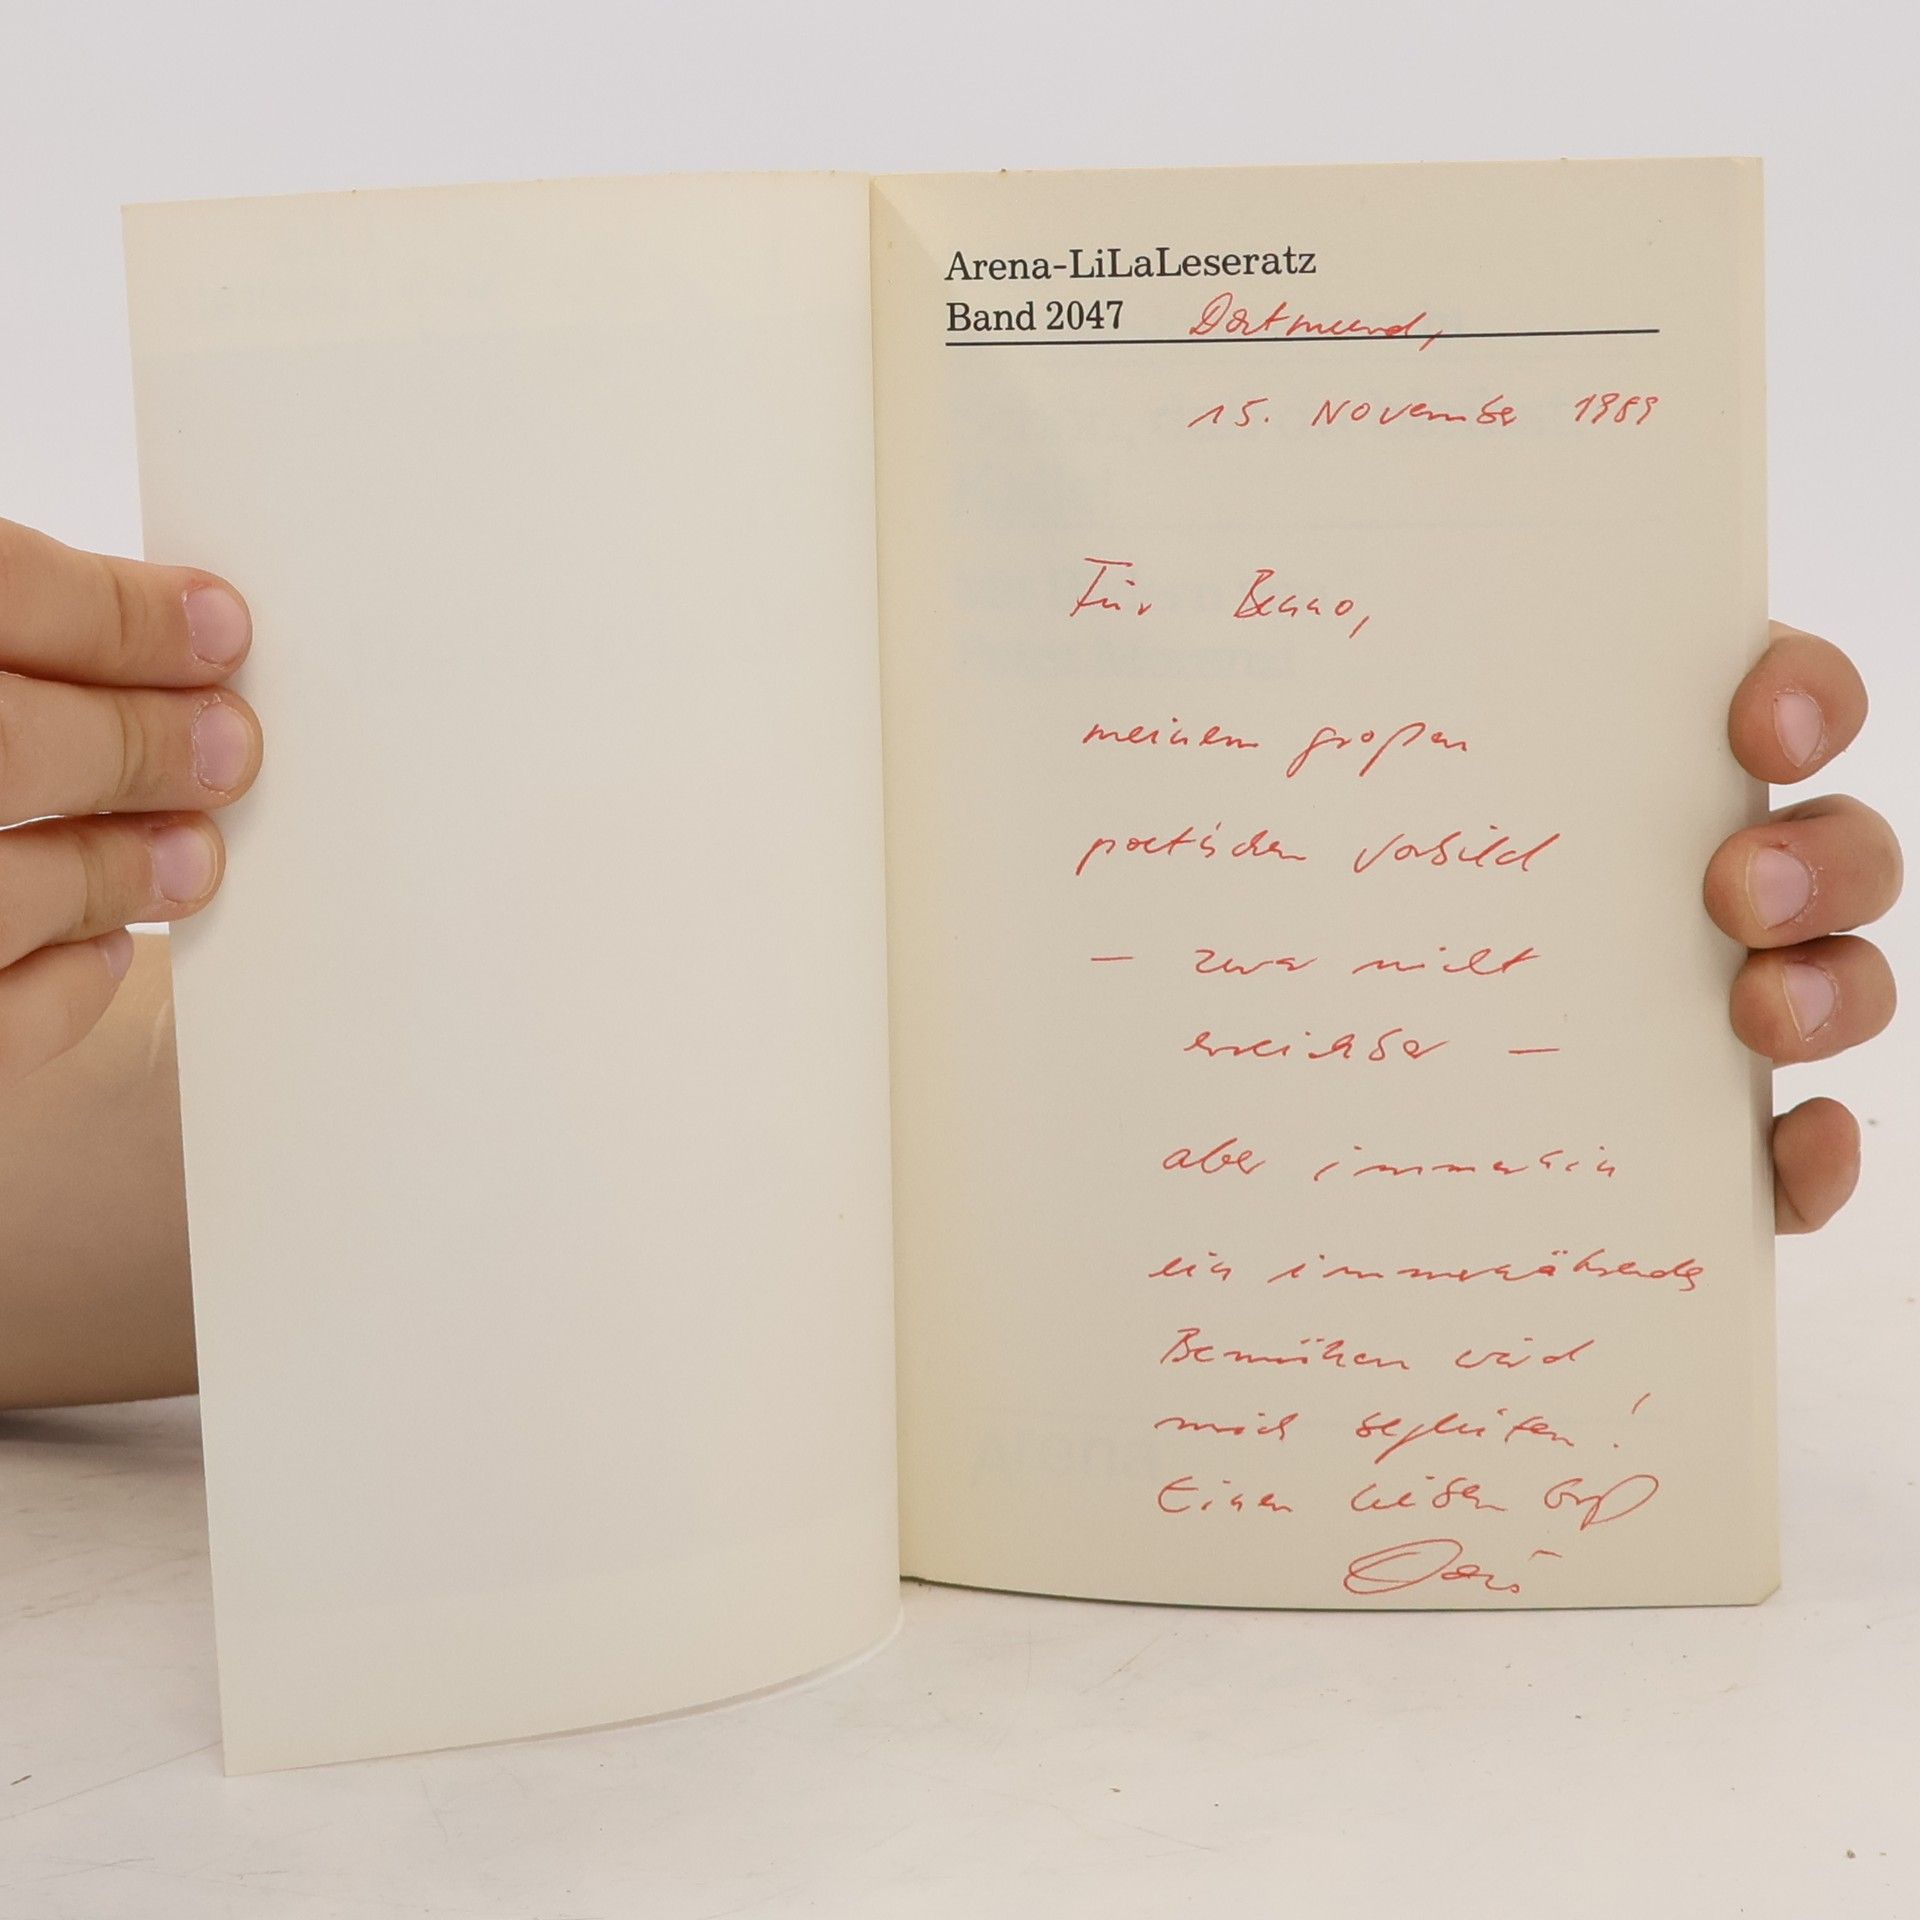 Arena-LiLaLeseratz
Band 2047 Dortmund,
15. November 1989
Für Benno,
meinem großen
poetischen Vorbild
— zwar nicht
erreichbar —
aber immerhin
ein immerwährendes
Bemühen wird
mich begleiten!
Einen lieben Gruß